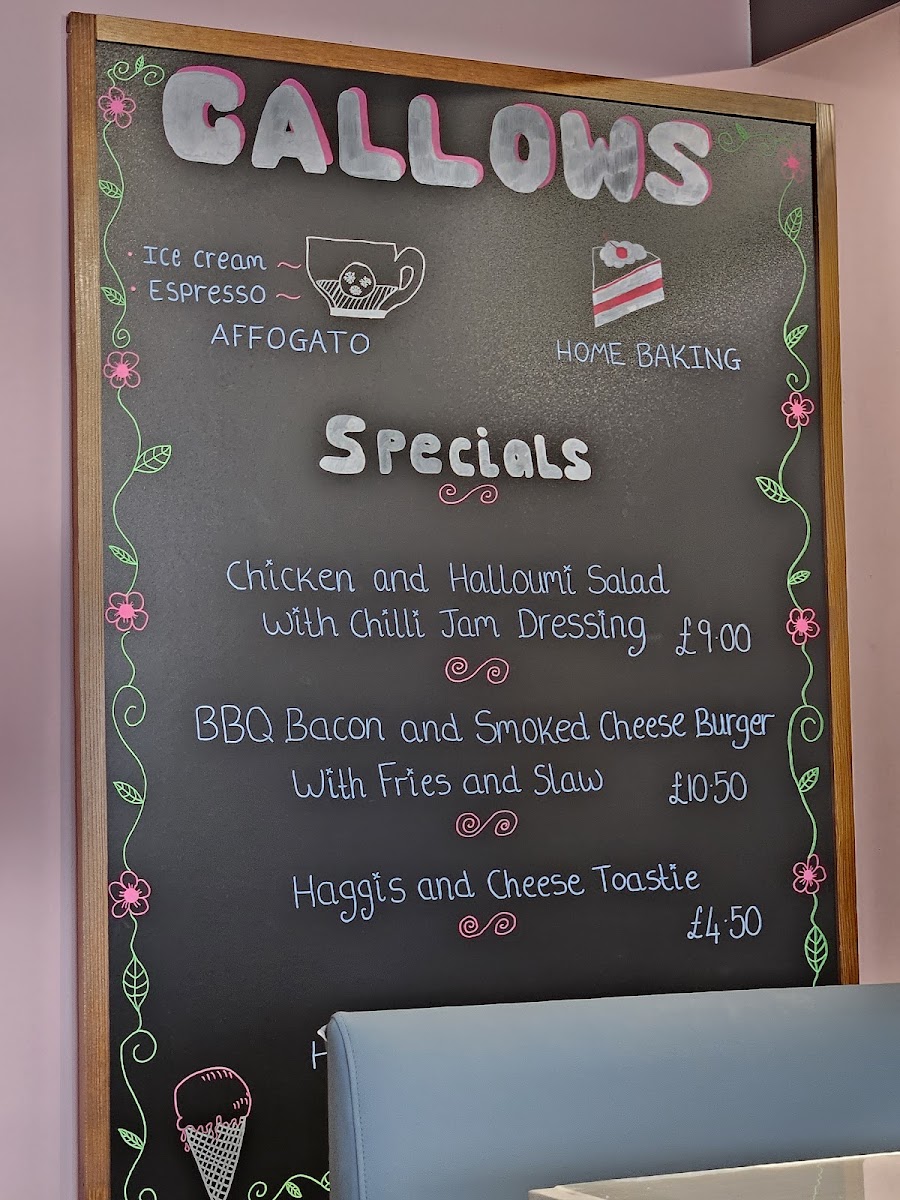 GALLOWS
Ice cream ~
Espresso ~
AFFOGATO
HOME BAKING
Specials
Chicken and Halloumi Salad
With Chilli Jam Dressing £9.00
BBQ Bacon and Smoked Cheese Burger
With Fries and Slaw £10.50
Haggis and Cheese Toastie
£4.50